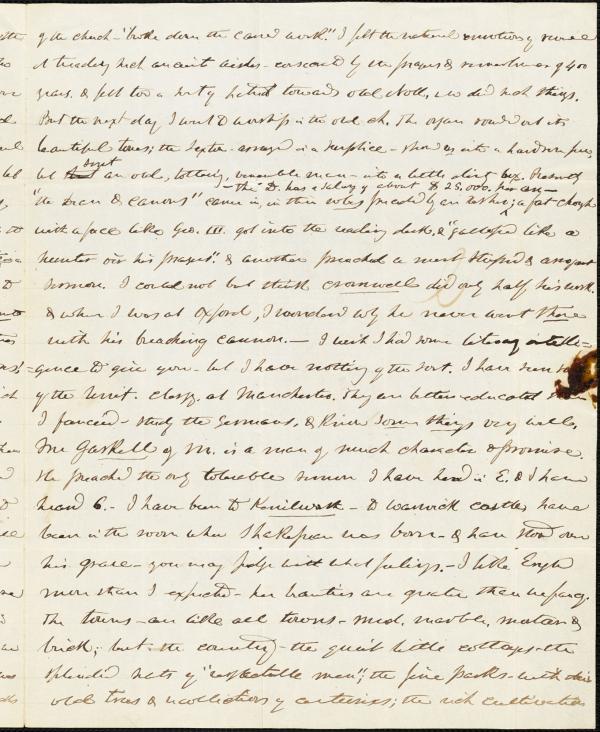 of the church – "broke down the carved work." I felt the natural emotions of
at treading such ancient aisles – consecrated by the prayers & remembrances of 400
years. & felt too a hearty hatred towards old Noll, who did such things.
But the next day I went to worship in the old ch. The organ sounded out its
beautiful tones; the Sexton – arrayed in a surplice – showed us into a handsome pew,
but sent an old, tottering, venerable man – into a little dirty box. Presently
– the D. has a salary of about $25,000. per an –
"the Dean & canons" came in, in their robes preceded by an usher; a fat
with a face like Geo. III. got into the reading desk, & "galloped like a
hunter o'er his prayers". & another preached a most stupid & arrogant
sermon. I could not but think Cromwell did only half his work.
& when I was at Oxford, I wondered why he never went there
with his breaching cannon. – I wish I had some literary intelli-
gence to give you – but I have nothing of the sort. I have seen some
of the Unit. clergy. at Manchester. They are better educated than
I fancied – study the Germans, & know some things very well.
Mr Gaskell of M. is a man of much character & promise.
He preached the only tolerable sermon I have heard in E. & I have
heard 6. – I have been to Kenilworth – to Warwick castles have
been in the room where Shakspear was born – & have stood over
his grave – you may judge with what feelings. – I like Engld
more than I expected – her beauties are greater than we fancy.
The towns – are like all towns – mud, marble, mortar &
brick; but the country – the quiet little cottages – the
splendid seats of "respectable men"; the fine parks – with their
old trees & recollections of centuries; the rich cultivation